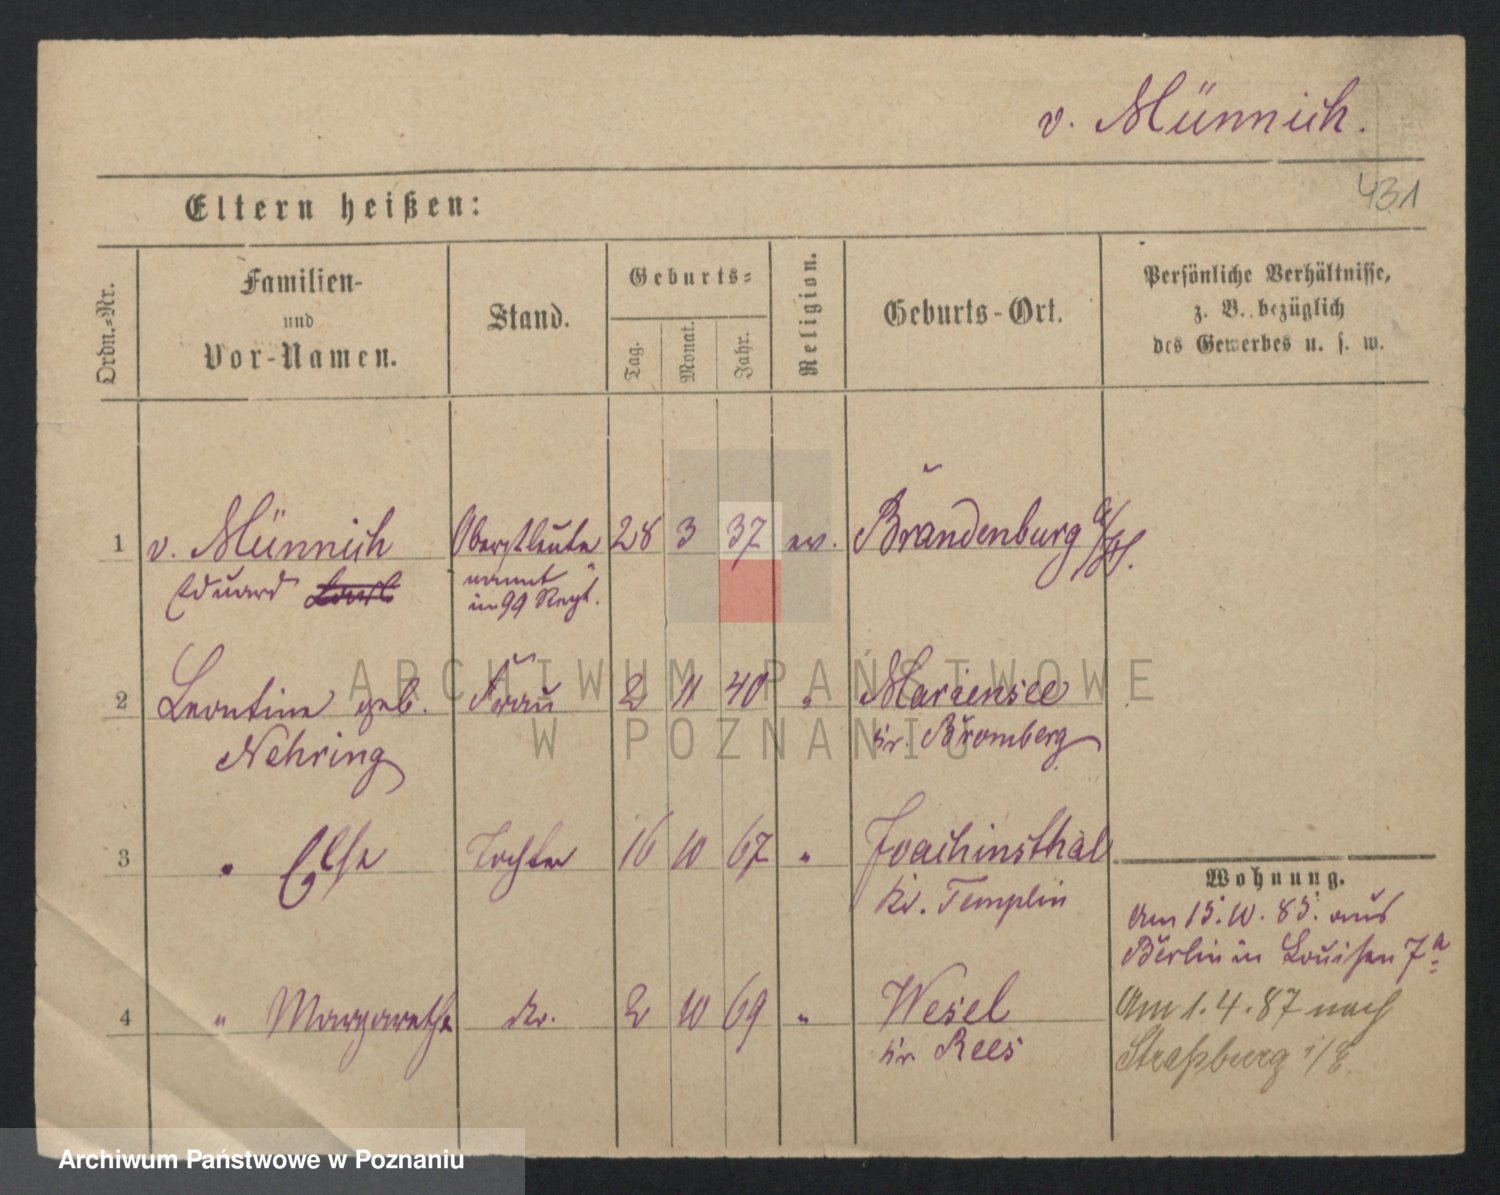 v. Münnich.
431
Eltern heißen:
Ordn.-Nr.
Familien-
und
Vor-Namen.
Stand.
Geburts-
Tag.
Monat.
Jahr.
Religion.
Geburts-Ort.
Persönliche Verhältnisse,
z. B. bezüglich
des Gewerbes u. s. w.
1 v. Münnich Oberstleute 28 3 37 ev. Brandenburg a/H.
Eduard nannt
in 99 Regt.
2 Leontine geb. Frau 2 11 40 " Mariensee
Nehring Kr. Bromberg
3 " Else Tochter 16 10 67 " Joachinsthal
Kr. Templin
Wohnung.
Am 15. 10. 85. aus
Berlin in Louisen 7a
4 " Margarethe do. 2 10 69 " Wesel
Kr Rees
Am 1. 4. 87 nach
Straßburg i/E.
ARCHIWUM PAŃSTWOWE
W POZNANIU
Archiwum Państwowe w Poznaniu